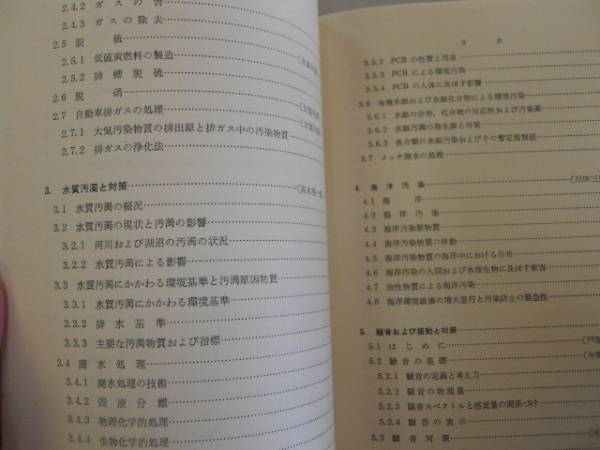 2.4.2 ガスの害
2.4.3 ガスの除去
2.5 脱硫
2.5.1 低硫黄燃料の製造
2.5.2 排煙脱硫
2.6 脱硝
2.7 自動車排ガスの処理
2.7.1 大気汚染物質の排出源と排ガス中の汚染物質
2.7.2 排ガスの浄化法
3. 水質汚濁と対策
3.1 水質汚濁の概況
3.2 水質汚濁の現状と汚濁の影響
3.2.1 河川および湖沼の汚濁の状況
3.2.2 水質汚濁による影響
3.3 水質汚濁にかかわる環境基準と汚濁原因物質
3.3.1 水質汚濁にかかわる環境基準
3.3.2 排水基準
3.3.3 主要な汚濁物質および指標
3.4 廃水処理
3.4.1 廃水処理の技術
3.4.2 固液分離
3.4.3 物理化学的処理
3.4.4 生物化学的処理
目次
3.5.2 PCBの性質と用途
3.5.3 PCBによる環境汚染
3.5.4 PCBの人体に及ぼす影響
3.6 有機水銀および水銀化合物による環境汚染
3.6.1 水銀の分布，化合物の反応性および汚染源
3.6.2 水銀汚濁の発生源と対策
3.6.3 魚介類の水銀汚染およびその暫定規制値
3.7 メッキ廃水の処理
4. 海洋汚染
4.1 海洋
4.2 海洋汚染
4.3 海洋汚染原物質
4.4 海洋汚染物質の移動
4.5 海洋汚染物質の海洋中における分布
4.6 海洋汚染の人間および水棲生物に及ぼす被害
4.7 油性物質による海洋汚染
4.8 海洋環境破壊の増大進行と汚染防止の緊急性
5. 騒音および振動と対策
5.1 はじめに
5.2 騒音の基礎
5.2.1 騒音の定義と考え方
5.2.2 騒音の物理量
5.2.3 騒音スペクトルと感覚量の関係づけ
5.2.4 騒音の表示
5.3 騒音対策